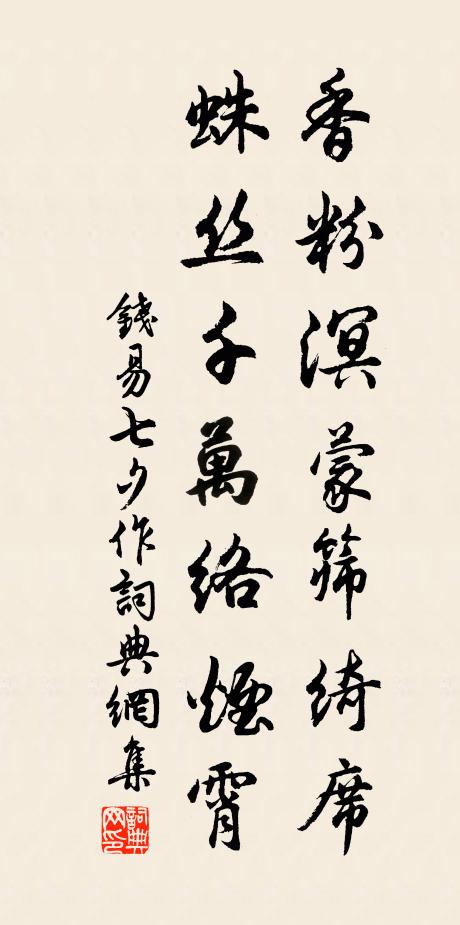 香粉溟蒙筛綺席
蛛丝千萬络煙霄
錢易七夕作詞典網集
詞典网印